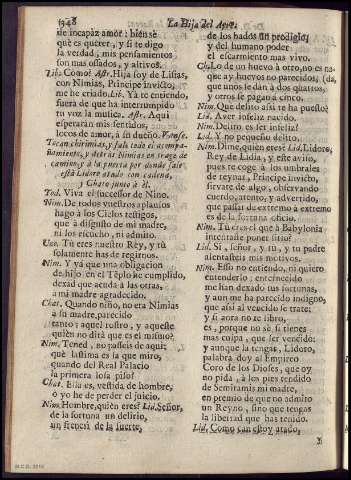 1348
La Hija del Ayre.
de incapàz amor: bien sè
què es querer, y si te digo
la verdad, mis pensamientos
son mas ossados, y altivos.
Lis. Como? Astr. Hija soy de Lisias,
con Nimias, Principe invicto,
me he criado. Lis. Yà te entiendo,
fuera de que ha interrumpido
tu voz la musica. Astr. Aqui
esperaràn mis sentidos,
locos de amor, à su dueño. Vanse.
Tocan chirimias, y sale todo el acompa-
ñamiento, y detràs Nimias en trage de
camino, y à la puerta por donde sale
està Lidoro atado con cadena,
y Chato junto à èl.
Tod. Viva el successor de Nino.
Nim. De todos vuestros aplausos
hago à los Cielos testigos,
que à disgusto de mi madre,
ni los escucho, ni admito.
Vno. Tù eres nuestro Rey, y tù
solamente has de regirnos.
Nim. Y yà que una obligacion
de hijo en el Templo he cumplido,
dexad que acuda à las otras,
à mi madre agradecido.
Chat. Quando niño, no era Nimias
à su madre parecido
tanto; aquel rostro, y aqueste
quièn no dirà que es el mismo?
Nim. Tened, no passeis de aqui:
què lastima es la que miro,
quando del Real Palacio
la primera losa piso?
Chat. Ella es, vestida de hombre,
ò yo he de perder el juicio.
Nim. Hombre, quièn eres? Lid. Señor,
de la fortuna un delirio,
un frenesì de la suerte,
de los hados un prodigio,
y del humano poder
el escarmiento mas vivo.
Chat. Lo de un huevo à otro, no es nada,
que ay huevos no parecidos,
que unos se dàn à dos quartos,
y otros se pagan à cinco.
Nim. Què delito assi te ha puesto?
Lid. Aver infeliz nacido.
Nim. Delito es ser infeliz?
Lid. Y no pequeño delito.
Nim. Dime, quièn eres? Lid. Lidoro,
Rey de Lidia, y este aviso,
pues te coge à los umbrales
de reynar, Principe invicto,
sirvate de algo, observando
cuerdo, atento, y advertido,
que passar de extremo à extremo
es de la fortuna oficio.
Nim. Tù eres el que à Babylonia
intentaste poner sitio?
Lid. Si, señor, y tù, y tu padre
alentasteis mis motivos.
Nim. Esso no entiendo, ni quiero
entenderlo; enternecido
me han dexado tus fortunas,
y aun me ha parecido indigno,
que assi al vencido se trate;
y si aora no te libro,
es, porque no sè si tienes
mas culpa, que ser vencido:
y aunque la tengas, Lidoro,
palabra doy al Empireo
Coro de los Dioses, que oy
no pida, à los pies rendido
de Semiramis mi madre,
en premio de que no admito
un Reyno, sino que tengas
la libertad que has tenido.
Lid. Como tan estoy atado,